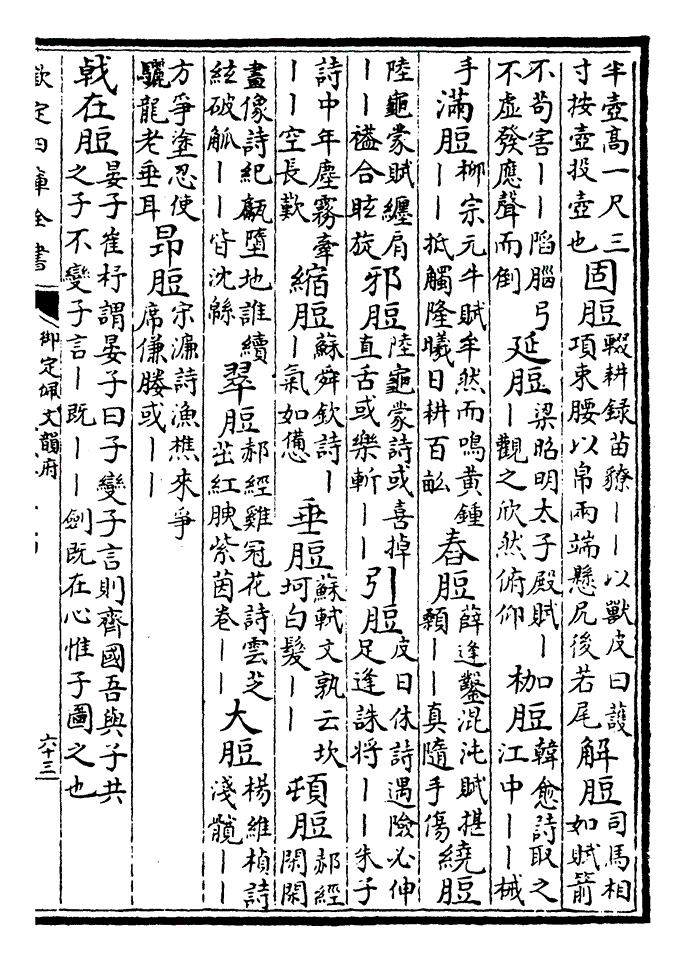 半壺高一尺三
寸按壺投壺也
固脰
輟耕録苗獠丨丨以獸皮曰護
項束腰以帛兩端懸尻後若尾
解脰
司馬相
如賦箭
不苟害丨丨陷腦弓
不虛發應聲而倒
延脰
梁昭明太子殿賦丨
丨觀之欣然俯仰
枷脰
韓愈詩取之
江中丨丨械
手
滿脰
柳宗元牛賦牟然而鳴黃鍾
丨丨抵觸隆曦日耕百畝
舂脰
薛逢鑿混沌賦堪
顙丨丨真隨手傷
繞脰
陸龜蒙賦纏肩
丨丨合眩旋
邪脰
陸龜蒙詩或喜掉
直舌或樂斬丨丨
引脰
皮日休詩遇險必伸
足逢誅將丨丨朱子
詩中年塵霧牽
丨丨空長歎
縮脰
蘇舜欽詩丨
丨氣如憊
垂脰
蘇軾文孰云坎
坷白髮丨丨
頓脰
郝經
閑閑
畫像詩紀瓢墮地誰續
絃破觚丨丨皆沈緜
翠脰
郝經雞冠花詩雲芝
茁紅腴紫茵卷丨丨
大脰
楊維楨詩
淺髐丨丨
方爭塗忍使
驪龍老垂耳
昂脰
宋濂詩漁樵來爭
席傔媵或丨丨
㦸在脰
晏子崔杼謂晏子曰子變子言則齊國吾與子共
之子不變子言丨既丨丨劍既在心惟子圖之也
欽定四庫全書
御定佩文韻府
六十三